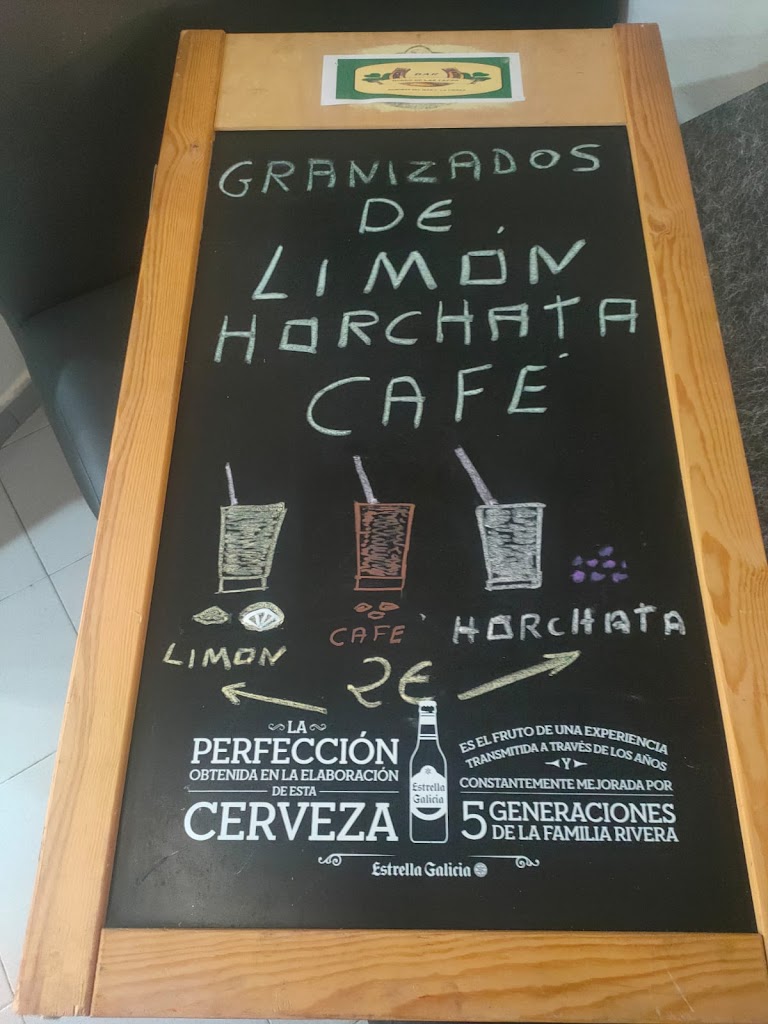 BAR
GRANIZADOS
DE
LIMÓN
HORCHATA
CAFÉ
LIMON
CAFE
HORCHATA
2€
LA
PERFECCIÓN
OBTENIDA EN LA ELABORACIÓN
DE ESTA
CERVEZA
Estrella
Galicia
ES EL FRUTO DE UNA EXPERIENCIA
TRANSMITIDA A TRAVÉS DE LOS AÑOS
Y
CONSTANTEMENTE MEJORADA POR
5 GENERACIONES
DE LA FAMILIA RIVERA
Estrella Galicia